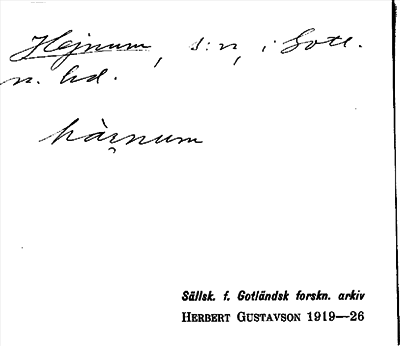 Hejnum, s:n, i Gotl.
n. hd.
hàįnum
Sällsk. f. Gotländsk forskn. arkiv
HERBERT GUSTAVSON 1919—26